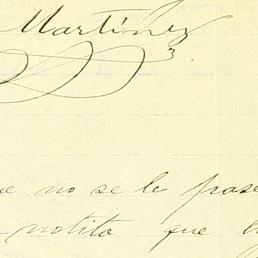 Martínez
e no se le pase
notita que